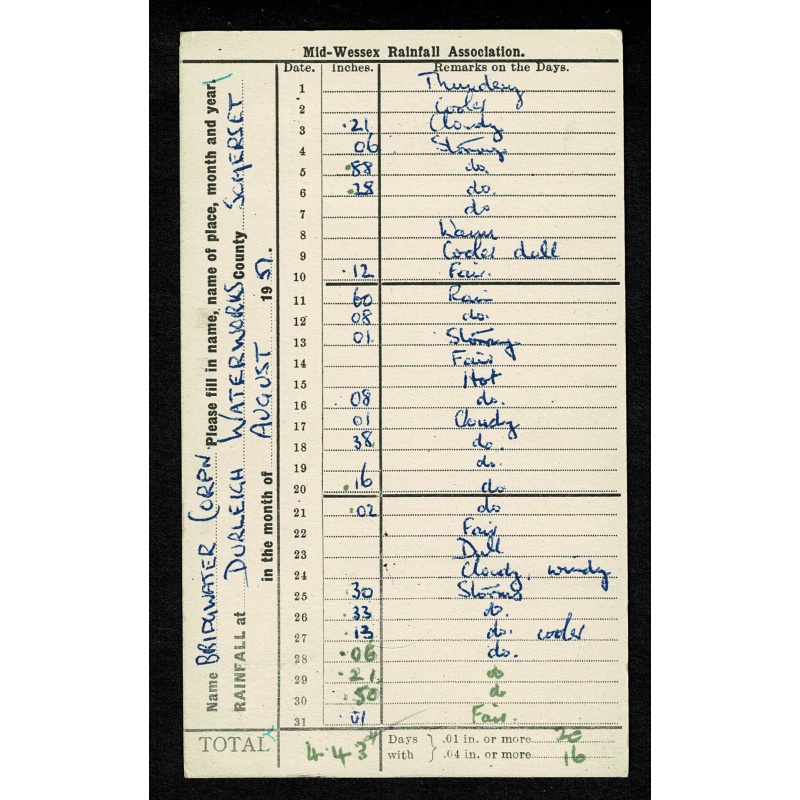 Mid-Wessex Rainfall Association.
Date. Inches. Remarks on the Days.
1 Thundery
2 Cooler
3 .21 Cloudy
4 06 Stormy
5 .88 do.
6 .28 do.
7 do
8 Warm
9 Cooler dull
10 .12 Fair.
11 60 Rain
12 08 do.
13 01. Stormy
14 Fair
15 Hot
16 08 do.
17 01 Cloudy
18 38 do.
19 do.
20 .16 do
21 .02 do
22 Fair
23 Dull
24 Cloudy, windy
25 .30 Storms
26 .33 do.
27 .13 do. cooler
28 .06 do.
29 .21. do
30 .50 do
31 .01 Fair.
TOTAL 4.43
Days with } .01 in. or more 20
.04 in. or more 16
Name BRIDGWATER CORPN. Please fill in name, name of place, month and year.
RAINFALL at DURLEIGH WATERWORKS County SOMERSET
in the month of AUGUST 1951.